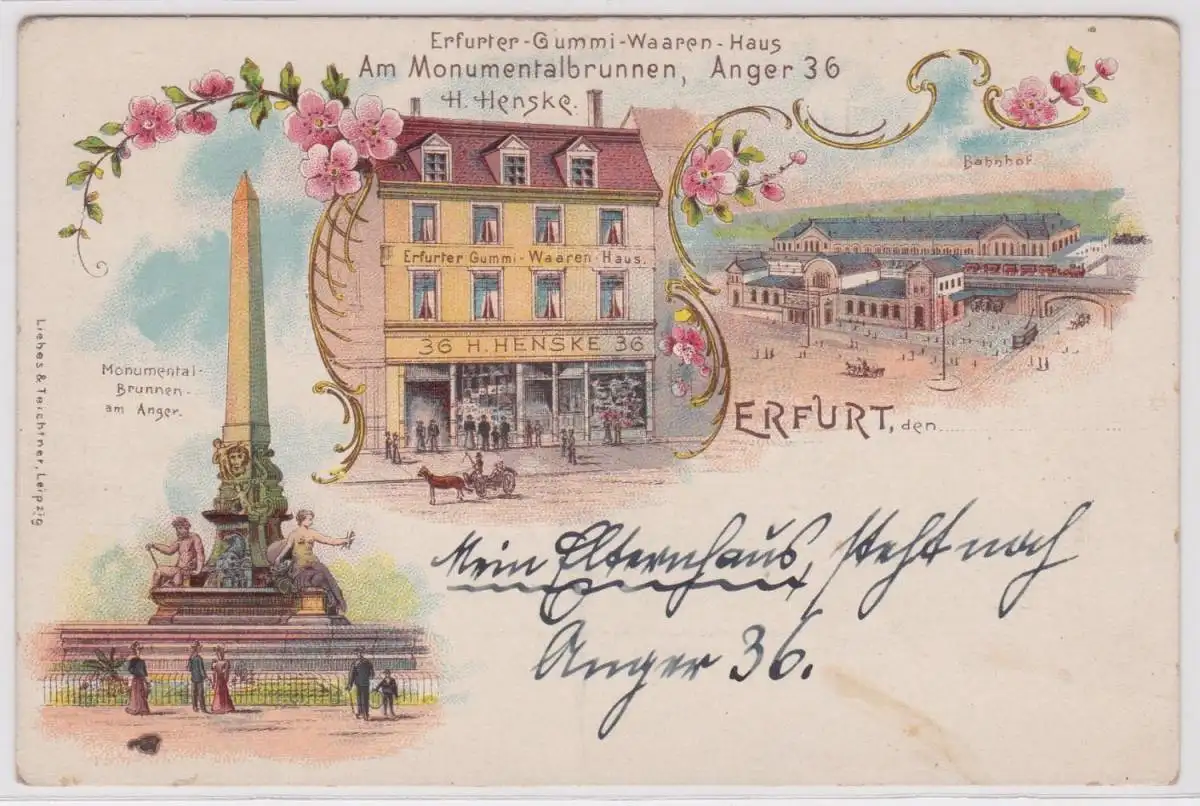 Erfurter-Gummi-Waaren-Haus
Am Monumentalbrunnen, Anger 36
H. Henske.
Bahnhof
Erfurter Gummi-Waaren-Haus.
36 H. HENSKE 36
Monumental-
Brunnen-
am Anger.
ERFURT, den
Liebes & Teichtner, Leipzig
Mein Elternhaus, steht noch
Anger 36.